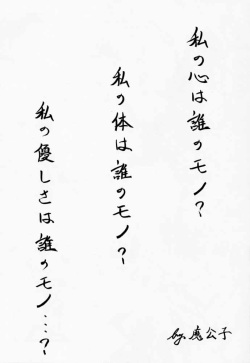 私の心は誰のモノ?
私の体は誰のモノ?
私の優しさは誰のモノ…?
by.鬼公子